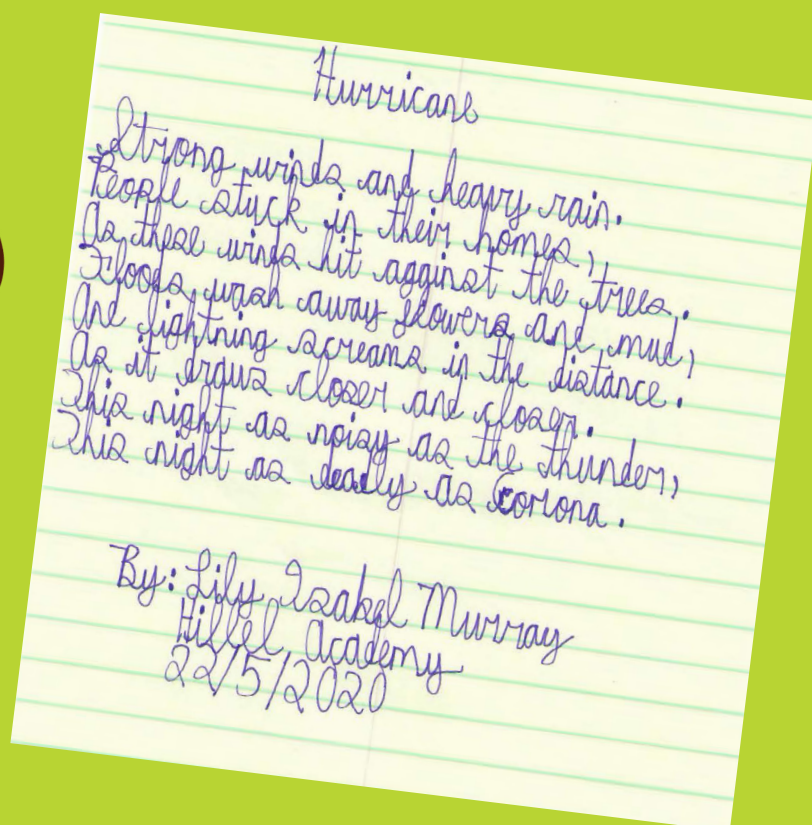 Hurricane
Strong winds and heavy rain.
People stuck in their homes,
As these winds hit agginst the trees.
Floods wash away flowers and mud,
And lightning screams in the distance.
As it draws closer and closer.
This night as noisy as the thunder,
This night as deadly as Corona.
By: Lily Isabel Murray
Hillel Academy
22/5/2020